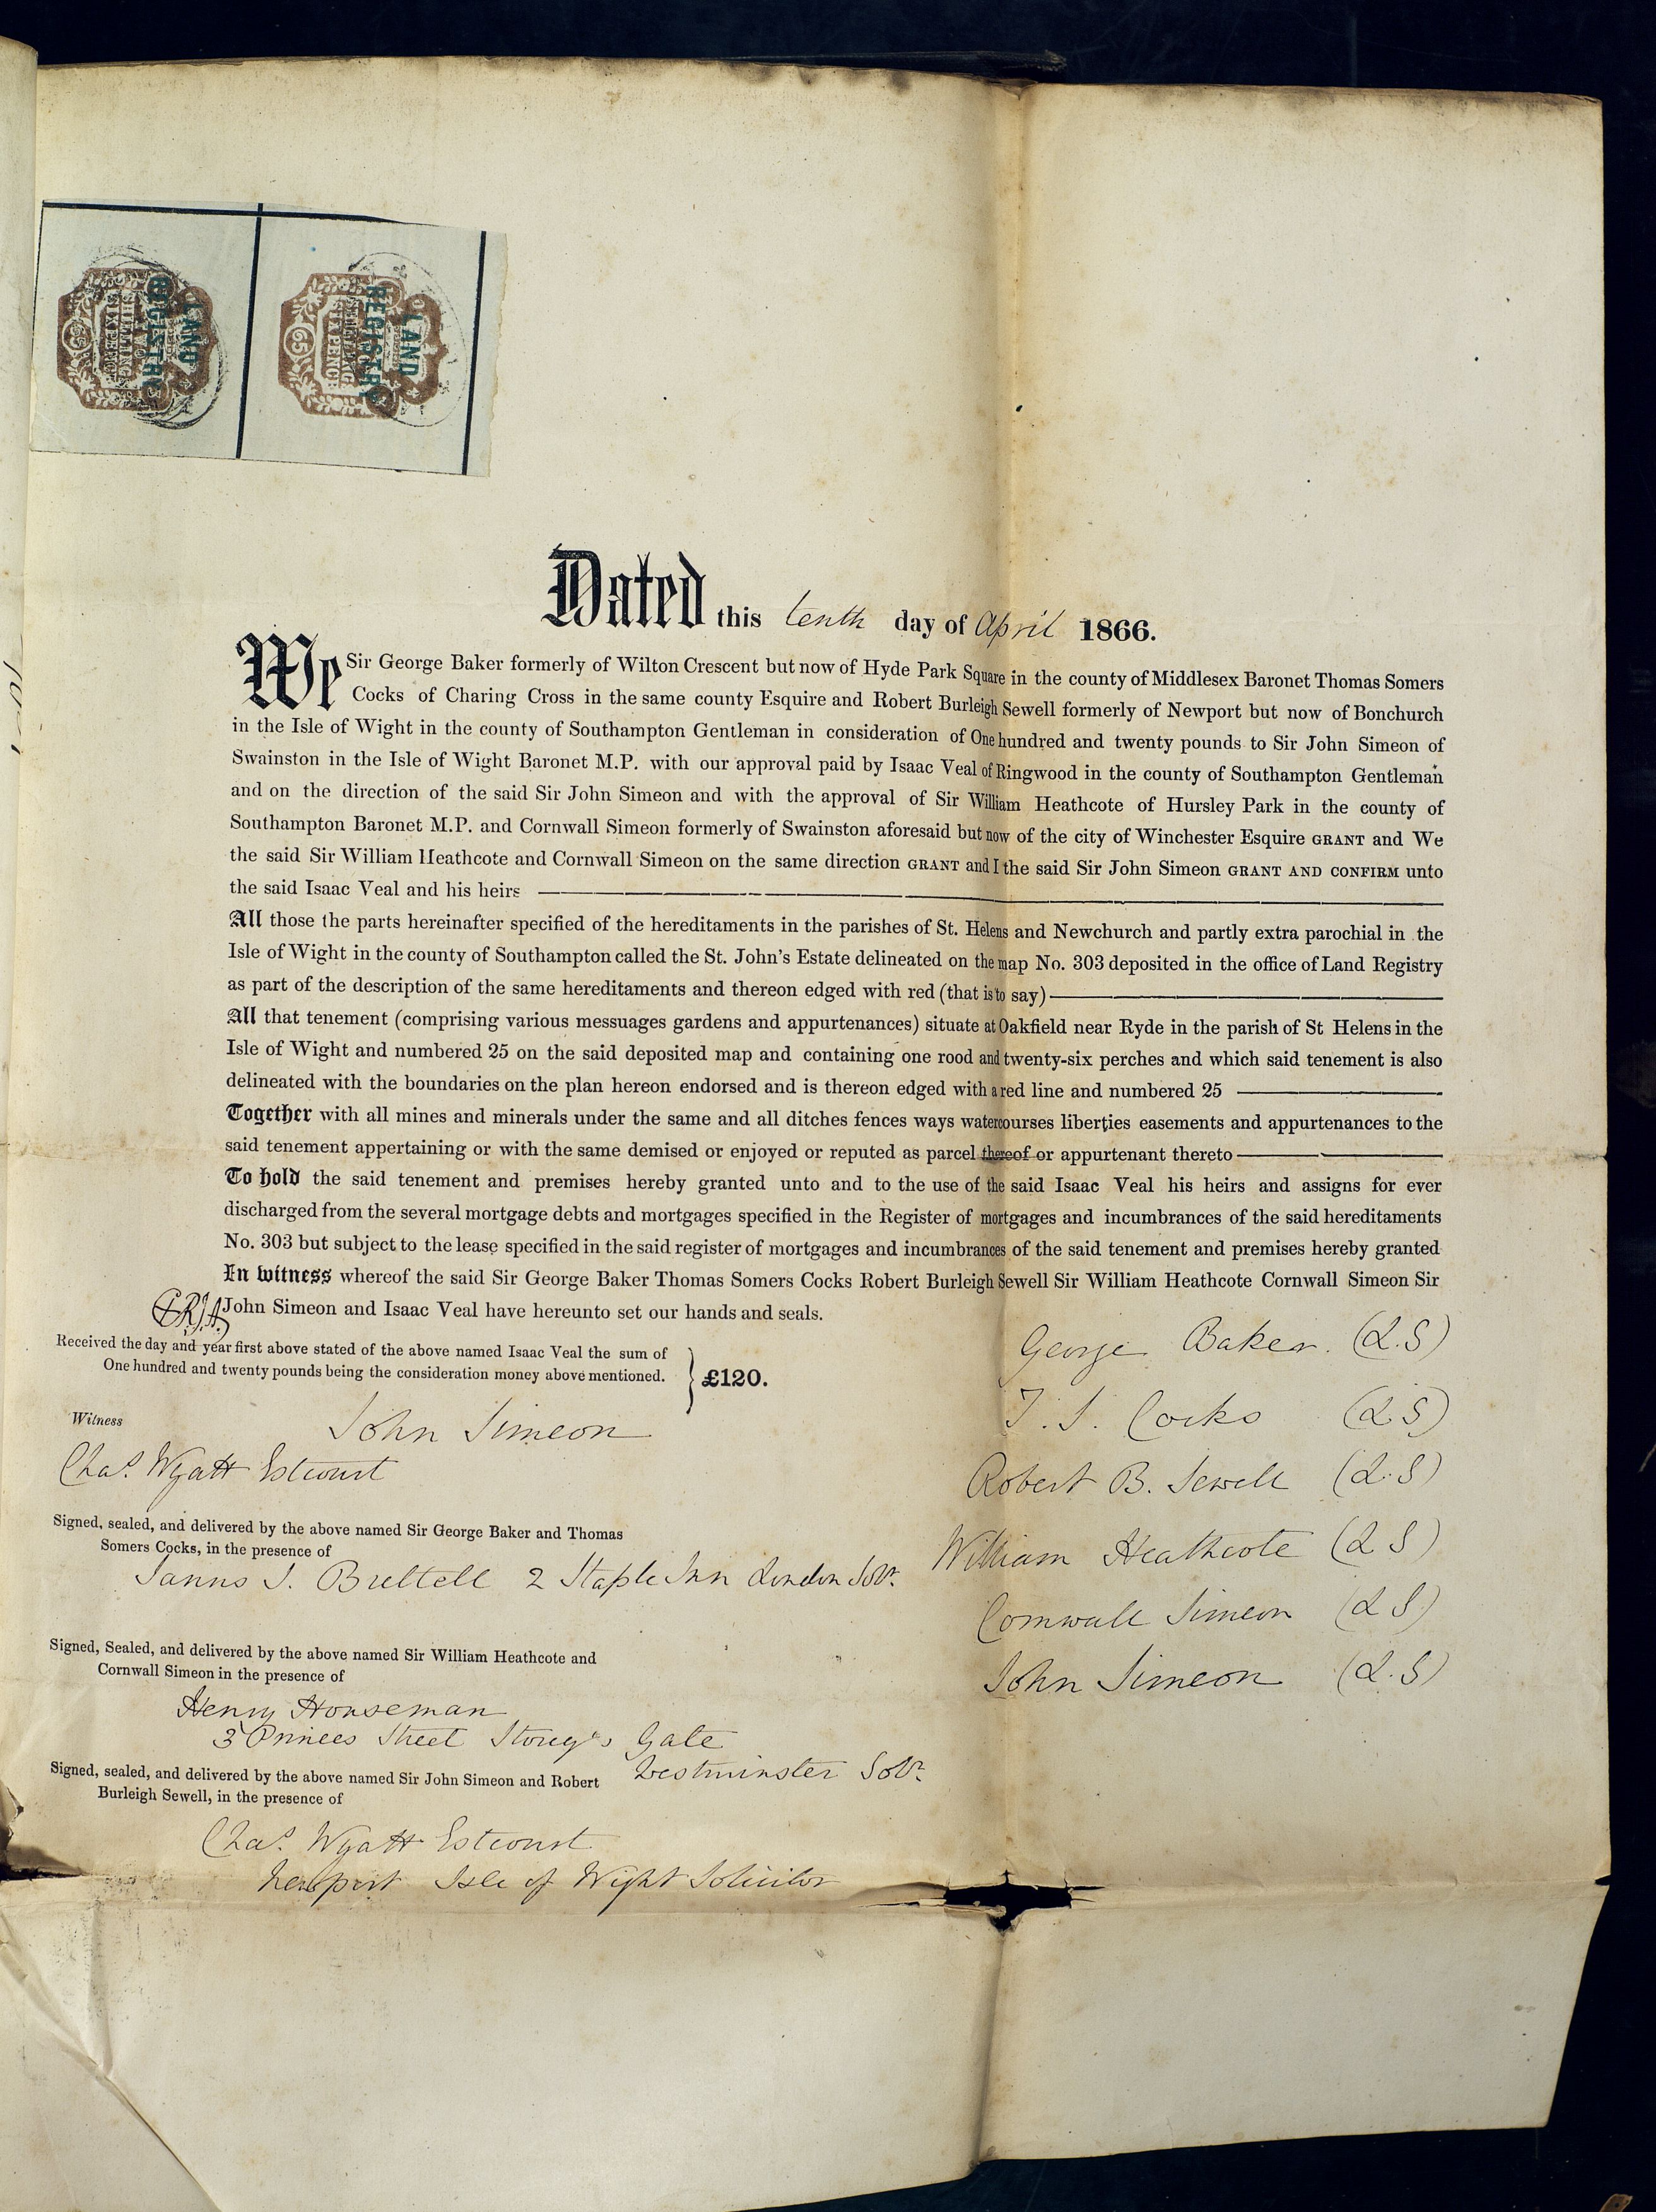 LAND REGISTRY
TWO
SHILLINGS
SIXPENCE
65
LAND REGISTRY
SIXPENCE
65
Dated this tenth day of April 1866.
We Sir George Baker formerly of Wilton Crescent but now of Hyde Park Square in the county of Middlesex Baronet Thomas Somers
Cocks of Charing Cross in the same county Esquire and Robert Burleigh Sewell formerly of Newport but now of Bonchurch
in the Isle of Wight in the county of Southampton Gentleman in consideration of One hundred and twenty pounds to Sir John Simeon of
Swainston in the Isle of Wight Baronet M.P. with our approval paid by Isaac Veal of Ringwood in the county of Southampton Gentleman
and on the direction of the said Sir John Simeon and with the approval of Sir William Heathcote of Hursley Park in the county of
Southampton Baronet M.P. and Cornwall Simeon formerly of Swainston aforesaid but now of the city of Winchester Esquire GRANT and We
the said Sir William Heathcote and Cornwall Simeon on the same direction GRANT and I the said Sir John Simeon GRANT AND CONFIRM unto
the said Isaac Veal and his heirs
All those the parts hereinafter specified of the hereditaments in the parishes of St. Helens and Newchurch and partly extra parochial in the
Isle of Wight in the county of Southampton called the St. John's Estate delineated on the map No. 303 deposited in the office of Land Registry
as part of the description of the same hereditaments and thereon edged with red (that is to say)
All that tenement (comprising various messuages gardens and appurtenances) situate at Oakfield near Ryde in the parish of St Helens in the
Isle of Wight and numbered 25 on the said deposited map and containing one rood and twenty-six perches and which said tenement is also
delineated with the boundaries on the plan hereon endorsed and is thereon edged with a red line and numbered 25
Together with all mines and minerals under the same and all ditches fences ways watercourses liberties easements and appurtenances to the
said tenement appertaining or with the same demised or enjoyed or reputed as parcel thereof or appurtenant thereto
To hold the said tenement and premises hereby granted unto and to the use of the said Isaac Veal his heirs and assigns for ever
discharged from the several mortgage debts and mortgages specified in the Register of mortgages and incumbrances of the said hereditaments
No. 303 but subject to the lease specified in the said register of mortgages and incumbrances of the said tenement and premises hereby granted
In witness whereof the said Sir George Baker Thomas Somers Cocks Robert Burleigh Sewell Sir William Heathcote Cornwall Simeon Sir
John Simeon and Isaac Veal have hereunto set our hands and seals.
Received the day and year first above stated of the above named Isaac Veal the sum of
One hundred and twenty pounds being the consideration money above mentioned. £120.
Witness
John Simeon
Chas. Wyatt Estcourt
Signed, sealed, and delivered by the above named Sir George Baker and Thomas
Somers Cocks, in the presence of
S. Brettell 2 Staple Inn London Solr.
Signed, Sealed, and delivered by the above named Sir William Heathcote and
Cornwall Simeon in the presence of
Henry Houseman
3 Princes Street Storey's Gate
Westminster Solr.
Signed, sealed, and delivered by the above named Sir John Simeon and Robert
Burleigh Sewell, in the presence of
Chas. Wyatt Estcourt
Newport Isle of Wight Solicitor
George Baker. (L.S)
T. S. Cocks (L.S)
Robert B. Sewell (L.S)
William Heathcote (L S)
Cornwall Simeon (L S)
John Simeon (L.S)